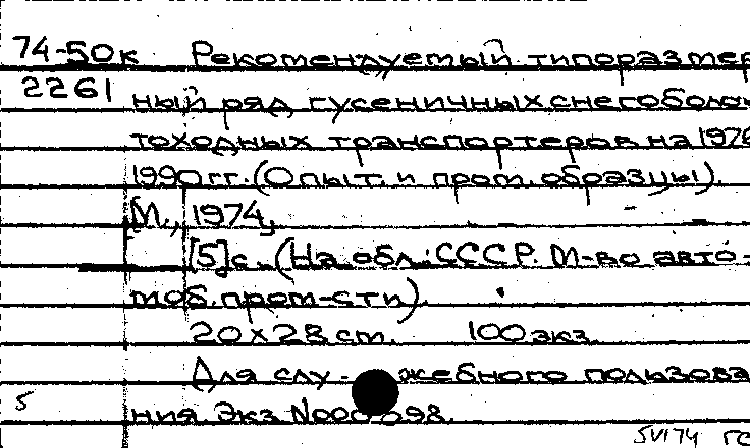 74-50к Рекомендуемый типоразмер
2261
ный ряд гусеничных снегоболо
тоходных транспортеров на 1976
1990 гг. (Опыт. и пром. образцы).
[М., 1974,
[5] с. (На обл.: СССР. М-во авто-
моб. пром-сти).
20×28 см. 100 экз.
Для слу- жебного пользова
5
ния. Экз. N000098.
5VI74